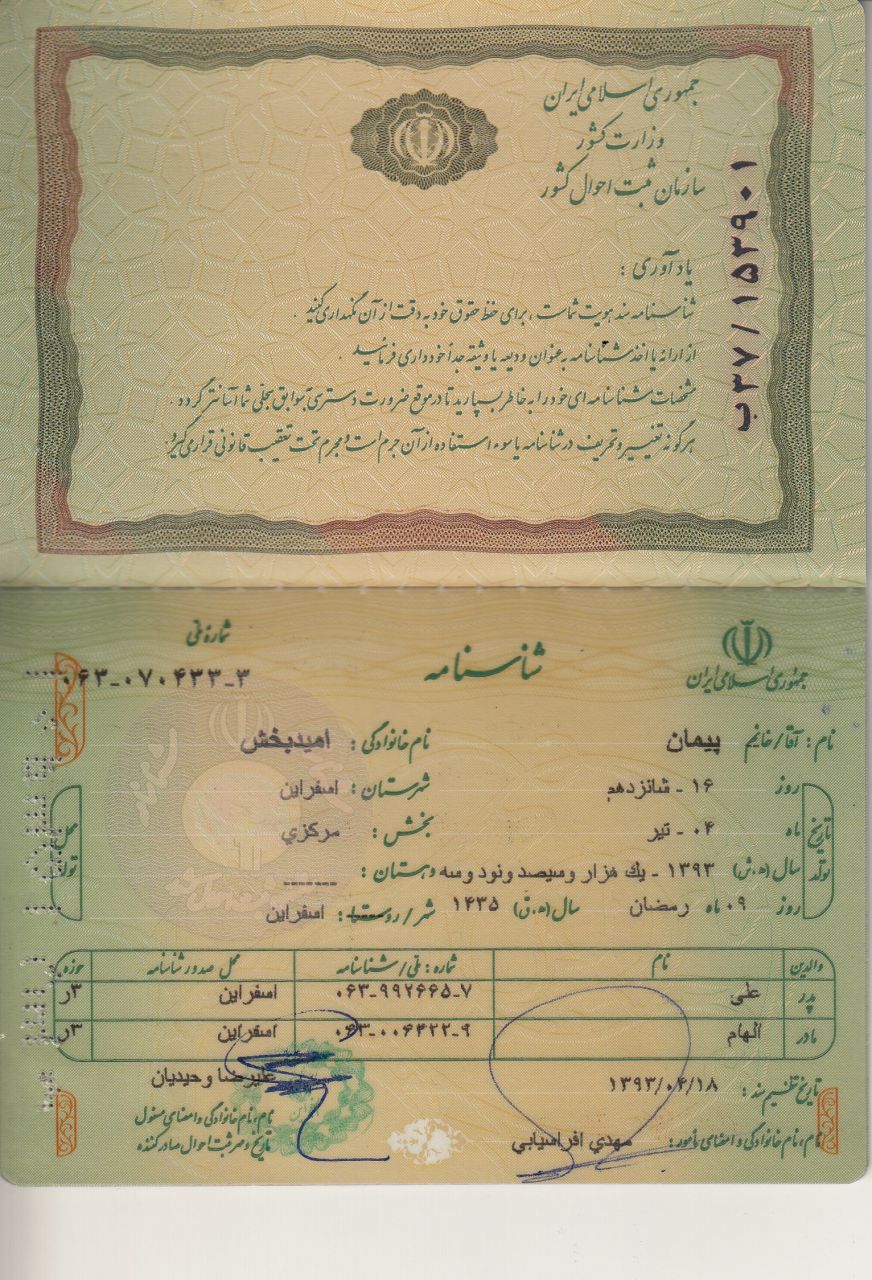 جمهوری اسلامی ایران
وزارت کشور
سازمان ثبت احوال کشور
ب۳۷/۱۵۳۹۰۱
یادآوری :
شناسنامه سند هویت شماست ، برای حفظ حقوق خود به دقت از آن نگهداری کنید .
از ارائه یا اخذ شناسنامه به عنوان ودیعه یا وثیقه جداً خودداری فرمائید .
مشخصات شناسنامه ای خود را به خاطر بسپارید تا در موقع ضرورت دسترسی به سوابق سجلی شما آسانتر گردد .
هرگونه تغییر و تحریف در شناسنامه یا سوء استفاده از آن جرم است و مجرم تحت تعقیب قانونی قرار می گیرد.
جمهوری اسلامی ایران
شناسنامه
شماره ملی
۰۶۳-۰۷۰۴۳۳-۳
نام : آقا/خانم پیمان نام خانوادگی : امیدبخش
تاریخ تولد
روز ۱۶ - شانزدهم
ماه ۰۴ - تیر
سال (ه.ش) ۱۳۹۳ - یك هزار وسیصد ونود وسه
روز ۰۹ ماه رمضان سال (ه.ق) ۱۴۳۵
محل تولد
شهرستان : اسفراین
بخش : مرکزي
دهستان : ------
شهر/روستا : اسفراین
والدین نام شماره : ملی/شناسنامه محل صدور شناسنامه حوزه
پدر علی ۰۶۳-۹۹۲۶۶۵-۷ اسفراین ۳ر
مادر الهام ۰۶۳-۰۰۶۴۲۲-۹ اسفراین ۳ر
تاریخ تنظیم سند : ۱۳۹۳/۰۴/۱۸
نام،نام خانوادگی و امضای مأمور : مهدي افراسیابي
علیرضا وحیدیان
نام،نام خانوادگی و امضای مسئول
تاریخ و مهر ثبت احوال صادرکننده